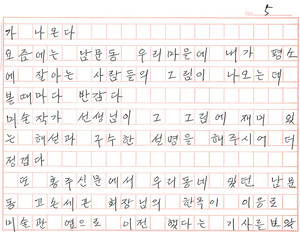 No. 5
가 나온다
요즘에는 남문동 우리마을에 내가 평소
에 잘아는 사람들의 그림이 나오는데
볼때마다 반갑다
미술작가 선생님이 그 그림에 재미 있
는 해설과 구수한 설명을 해주시어 더
정겹다
또 홍주신문에서 우리동네 있던 남문
동 고손세관 회장님의 한옥이 이응로
미술관 옆으로 이전 했다는 기사를 보았